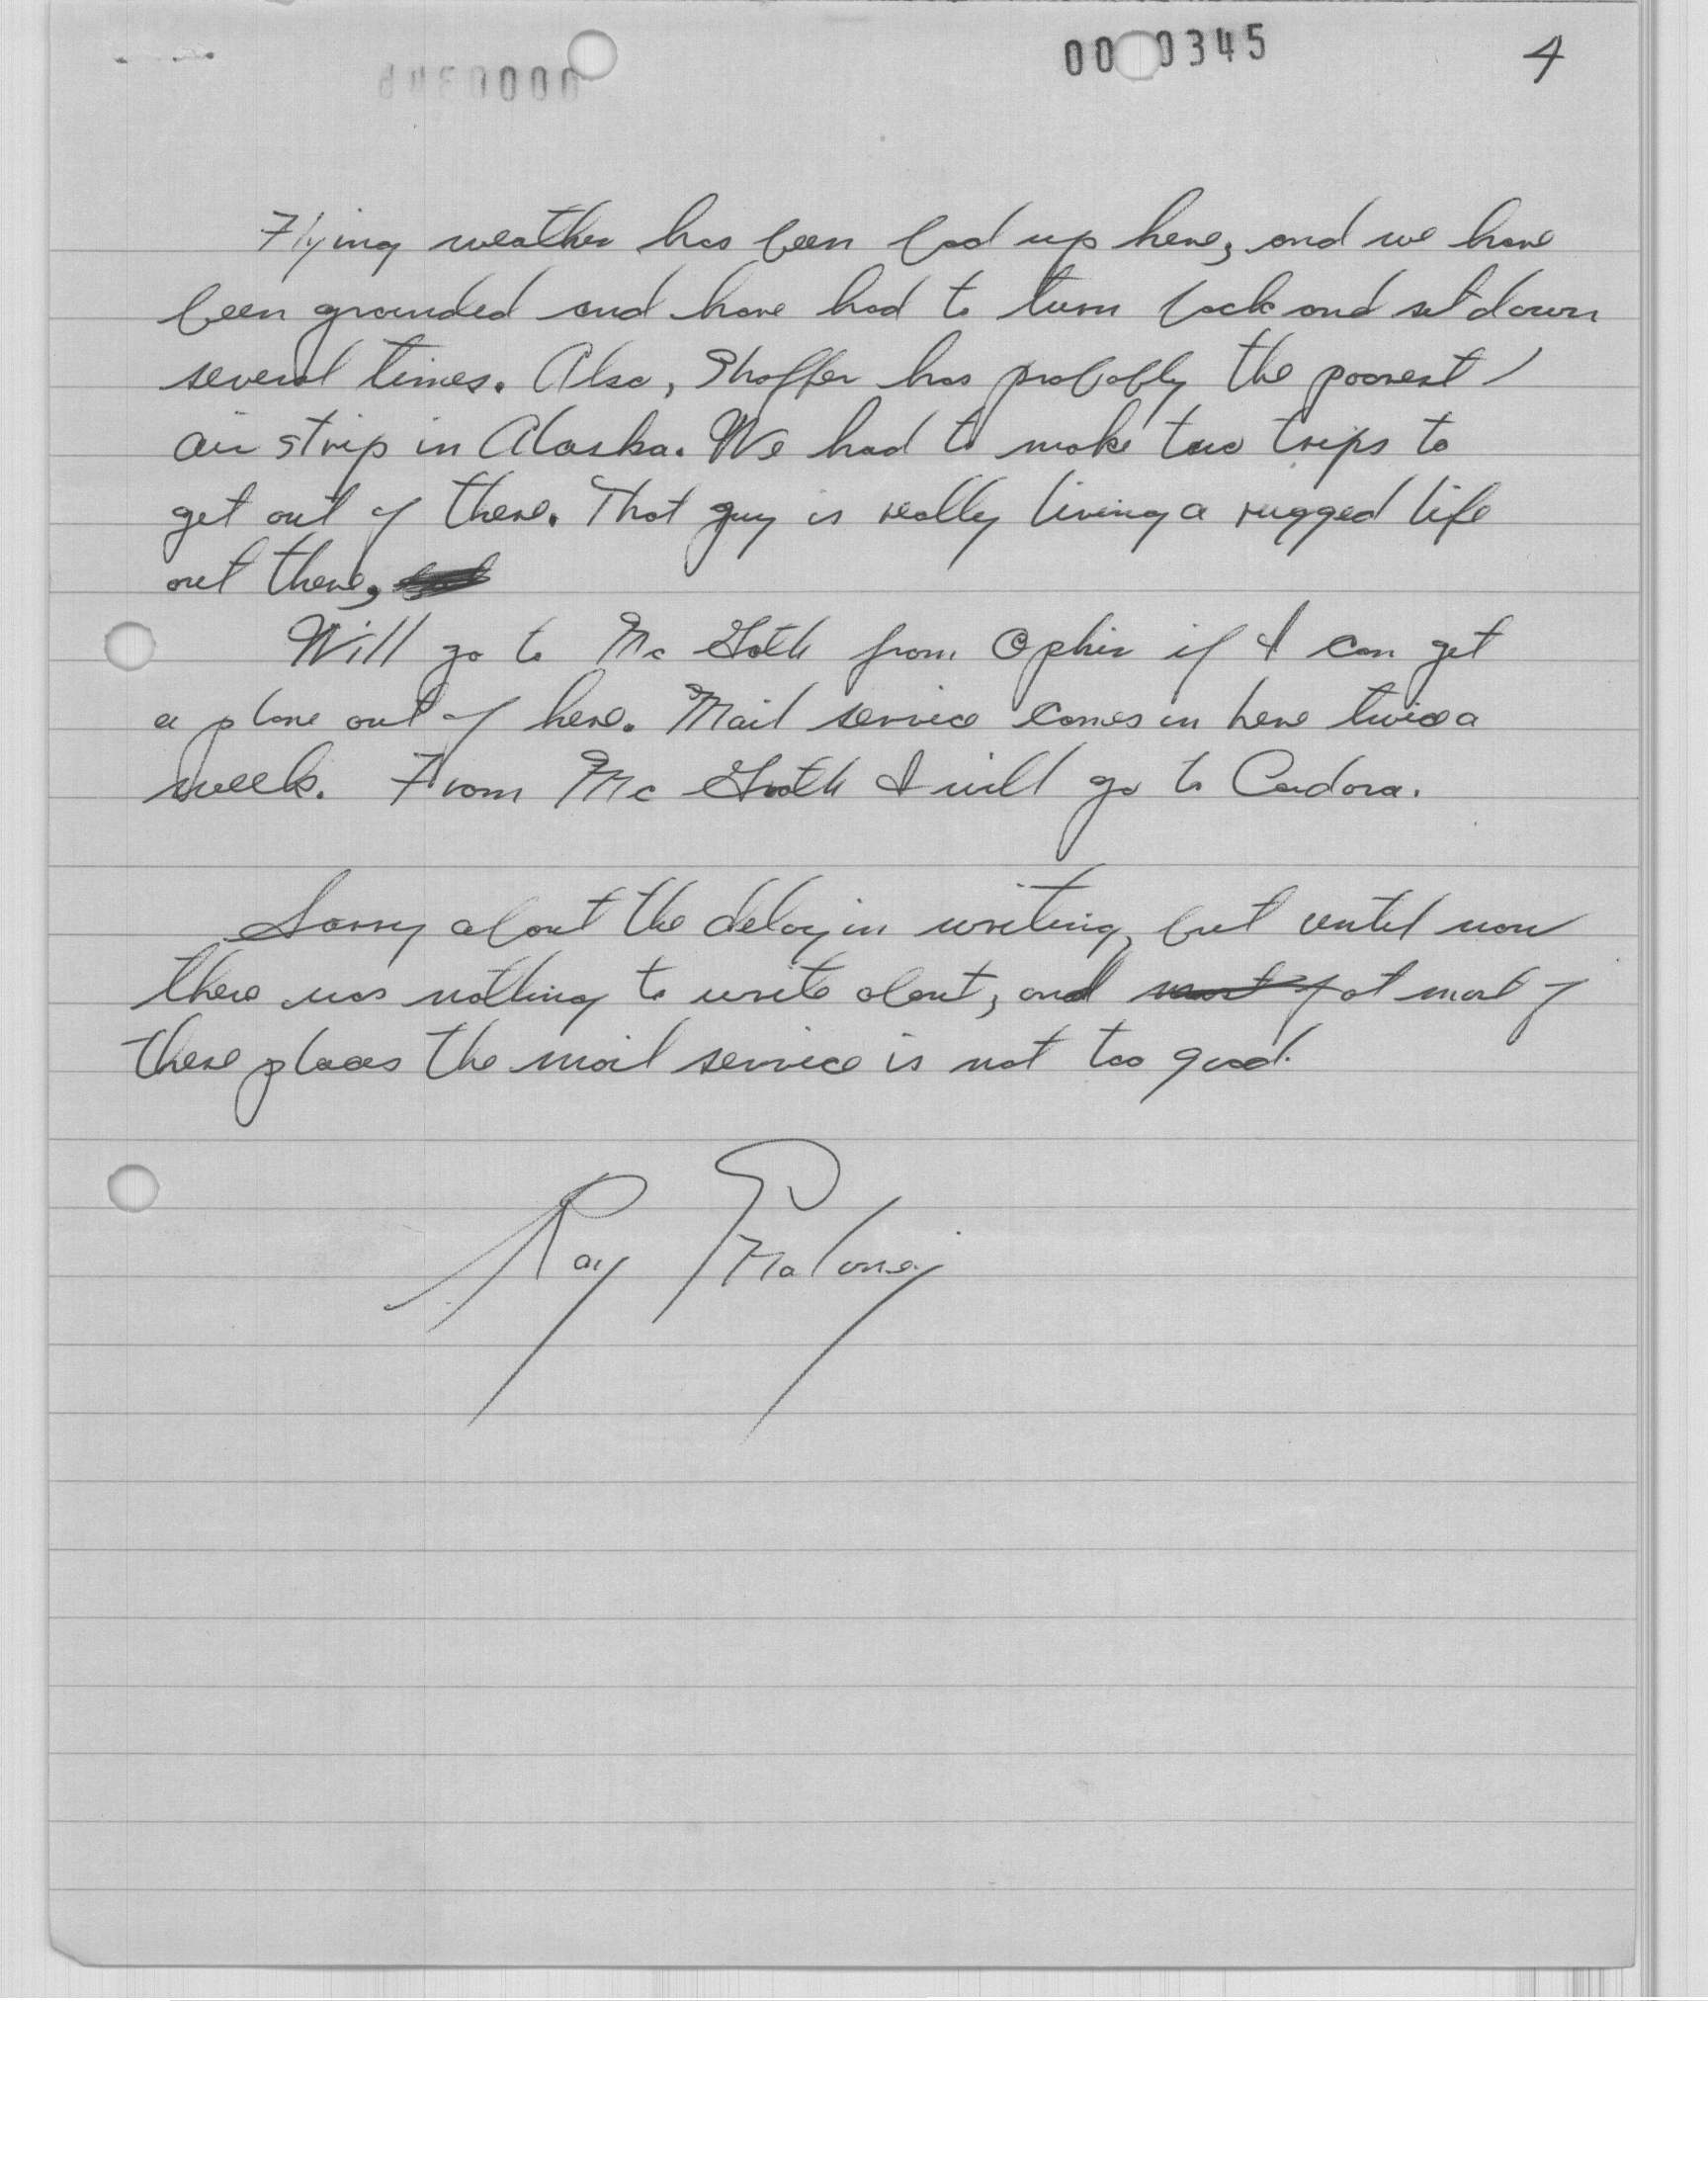 00 0345
4
Flying weather has been bad up here, and we have
been grounded and have had to turn back and set down
several times. Also, Shaffer has probably the poorest
air strip in Alaska. We had to make two trips to
get out of there. That guy is really living a rugged life
out there,
Will go to Mc Grath from Ophir if I can get
a plane out of here. Mail service comes in here twice a
week. From Mc Grath I will go to Candora.
Sorry about the delay in writing, but until now
there was nothing to write about, and most of at most of
these places the mail service is not too good.
Ray Maloney